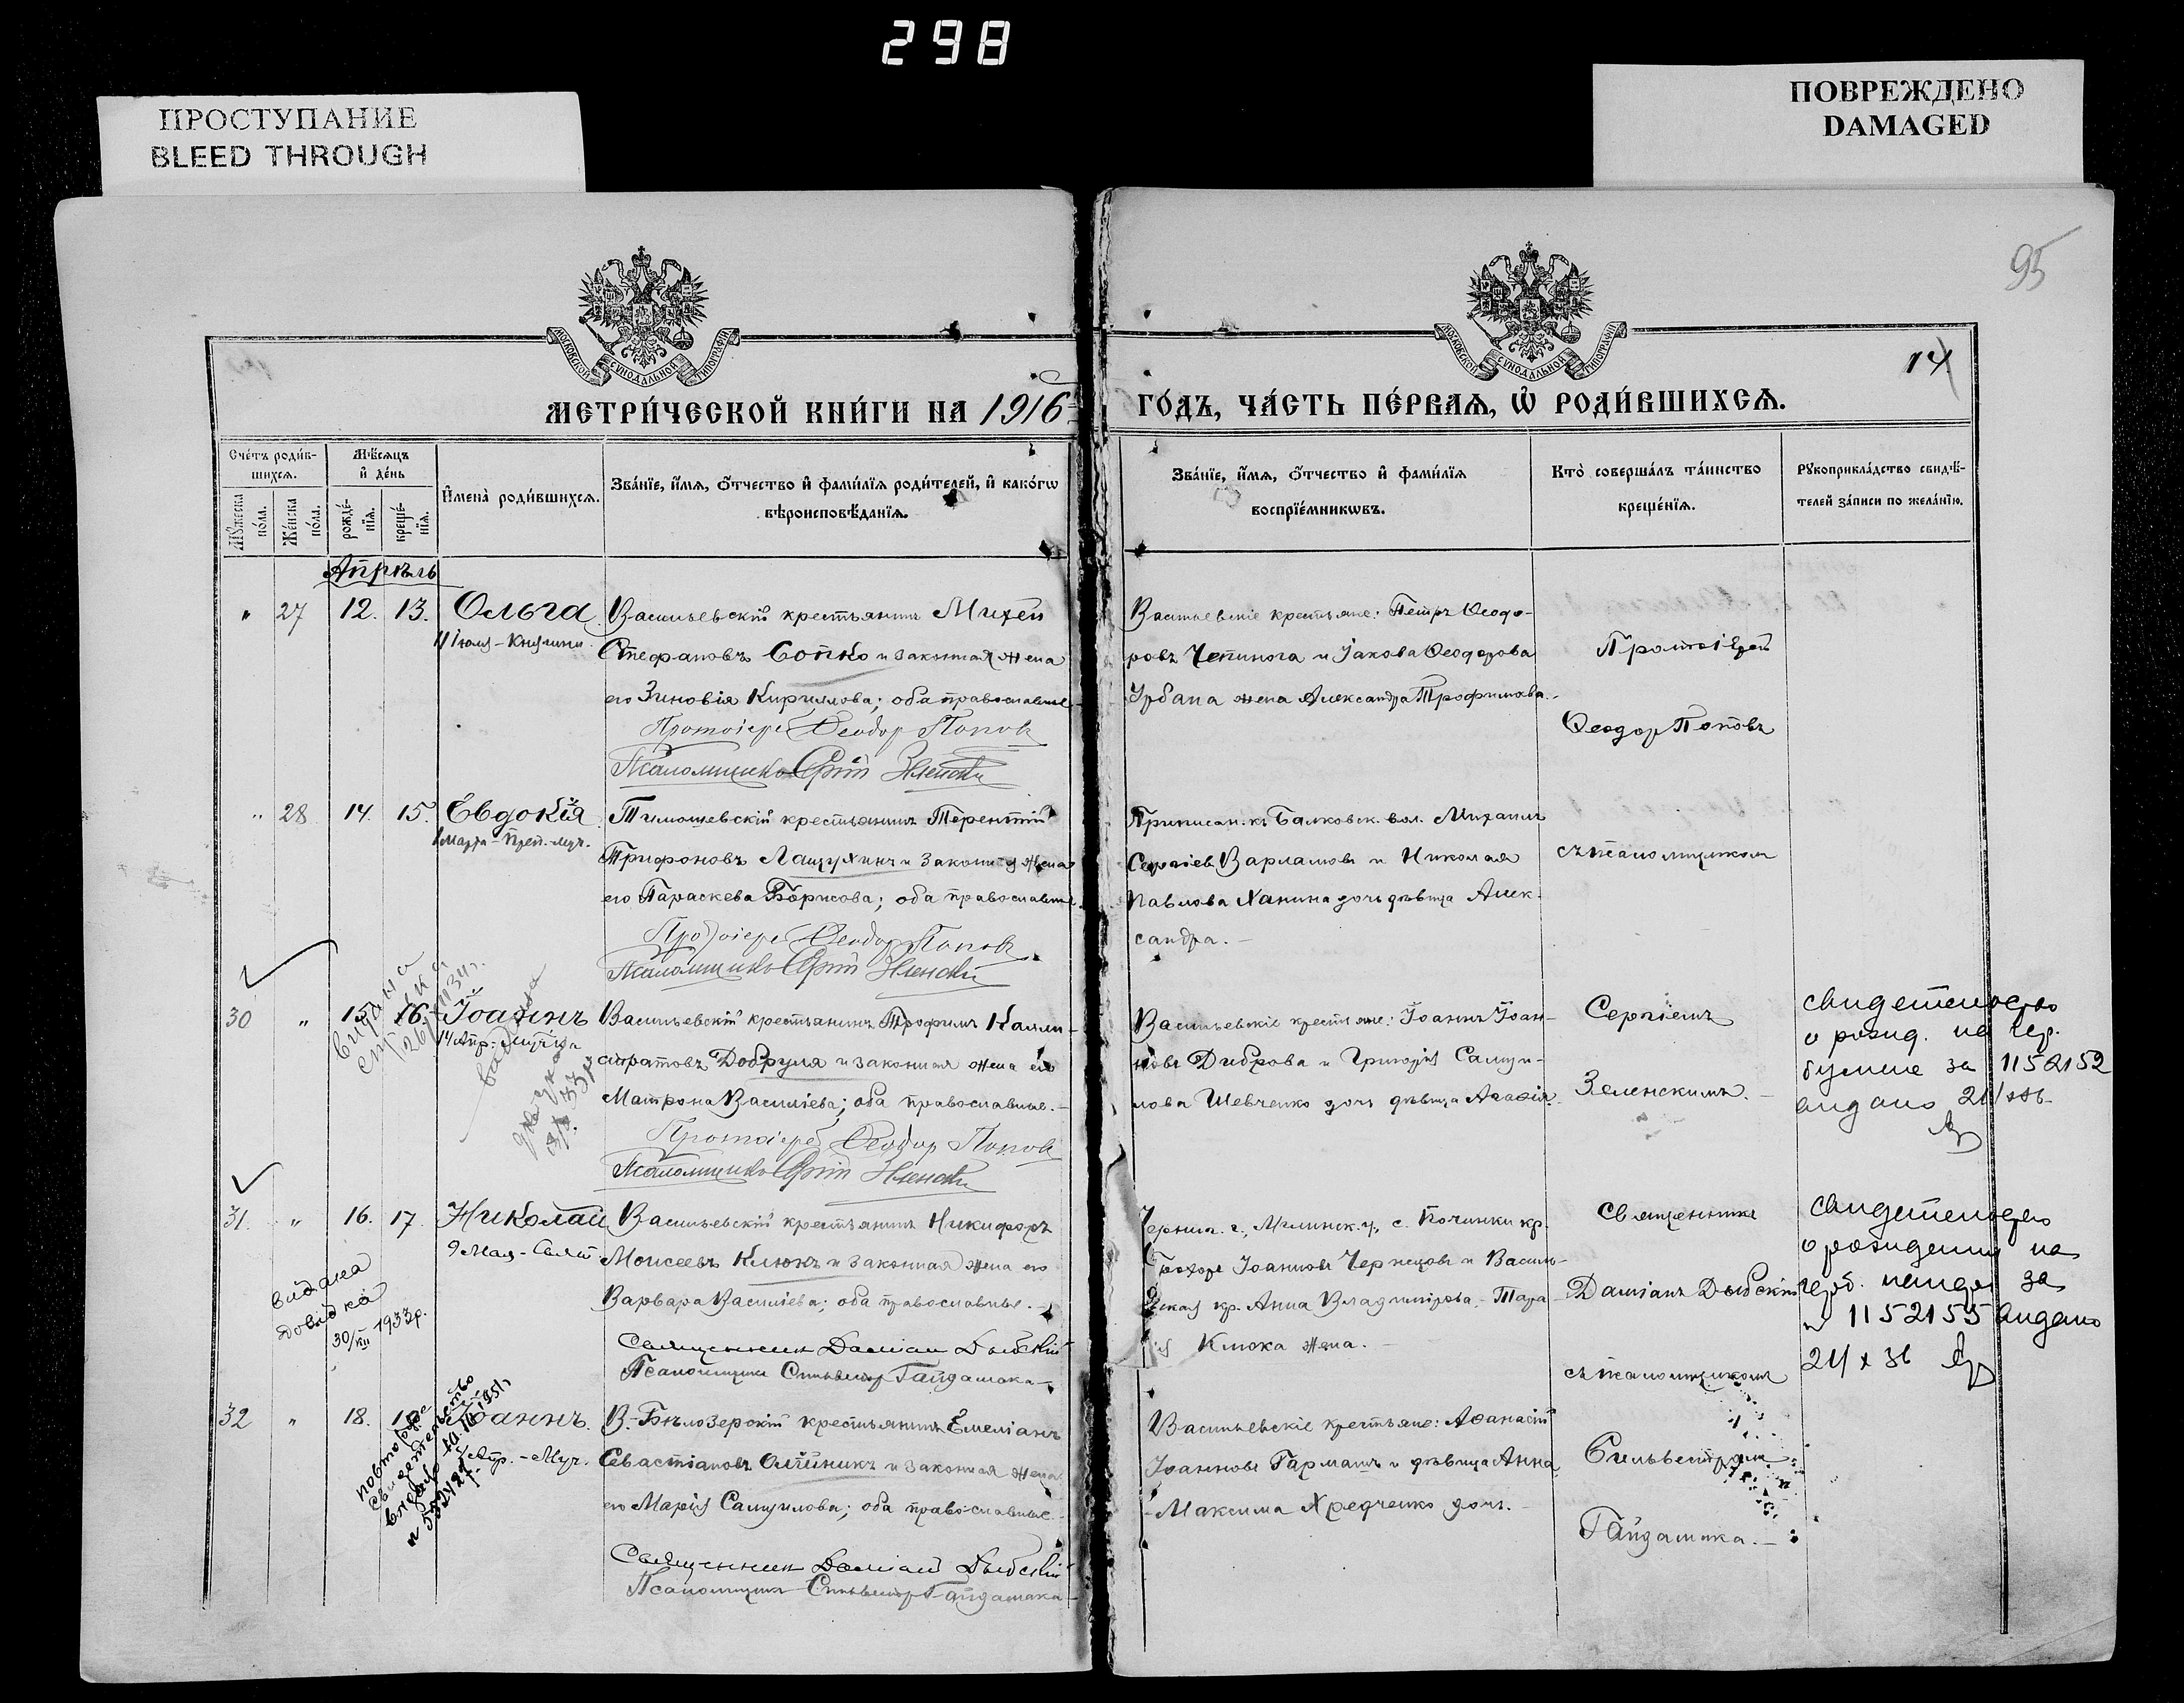 298
ПРОСТУПАНИЕ
BLEED THROUGH
ПОВРЕЖДЕНО
DAMAGED
95
14
МОСКОВСКОЙ СѴНОДАЛЬНОЙ ТИПОГРАФІИ
МОСКОВСКОЙ СѴНОДАЛЬНОЙ ТИПОГРАФІИ
МЕТРИ́ЧЕСКОЙ КНИ́ГИ НА 1916
ГО́ДЪ, ЧА́СТЬ ПЕ́РВАѦ, Ѡ҆ РОДИ́ВШИХСѦ.
Сче́тъ роди́в-
шихсѧ.
Мѹ́жеска по́ла.
Же́нска по́ла.
Мѣ́сѧцъ
и҆ де́нь
рожде́-
нїѧ.
креще́-
нїѧ.
И҆мена̀ роди́вшихсѧ.
Зва́нїе, и҆́мѧ, ѻ҆́тчество и҆ фами́лїѧ роди́телей, и҆ како́гѡ
вѣроисповѣ́данїѧ.
Зва́нїе, и҆́мѧ, ѻ҆́тчество и҆ фами́лїѧ
воспрїе́мникѡвъ.
Кто̀ соверша́лъ та́инство
креще́нїѧ.
Рꙋкоприкла́дство свидѣ́-
телей за́писи по жела́нїю.
Апрѣль
" 27 12. 13. Ольга
11 Іюля - Княгини
Васильевскій крестьянинъ Михей
Стефановъ Сопко и законная жена
его Зиновія Кириллова; оба православные
Протоіерей Ѳеодор Попов
Псаломщик Сергій Зеленскій
Васильевскіе крестьяне: Петръ Ѳеодо-
ровъ Чепинога и Іакова Ѳеодорова
Урбана жена Александра Трофимова.
Протоіерей
Ѳеодор Поповъ
" 28 14. 15. Евдокія
1 Марта - Преп.-муч.
Тимошевскій крестьянинъ Терентій
Трифоновъ Лащухинъ и законная жена
его Параскева Борисова; оба православные.
Протоіерей Ѳеодор Попов
Псаломщик Сергій Зеленскій
Приписан. къ Балковск. вол. Михаилъ
Сергіевъ Варламовъ и Николая
Павлова Ханина дочь дѣвица Алек-
сандра.
съ псаломщикомъ
30 " 15. 16. Іоаннъ
14 Апр. - Муч.
Васильевскій крестьянинъ Трофимъ Калли-
стратовъ Добруля и законная жена его
Матрона Василіева; оба православные.
Протоіерей Ѳеодор Попов
Псаломщик Сергій Зеленскій
Васильевскіе крестьяне: Іоаннъ Іоан-
новъ Диброва и Григорія Самуи-
лова Шевченко дочь дѣвица Агафія.
Сергіемъ
Зеленскимъ.
свидетельство
о рожд. на гер.
бумаге за 1152152
выдано
31. " 16. 17. Николай
9 Мая - Свят.
видана
довідка
30/XII 1933р.
Васильевскій крестьянинъ Никифоръ
Моисеевъ Клюкъ и законная жена его
Варвара Василіева; оба православные.
Священник Даміан Дыбскій
Псаломщик Сильвестр Гайдамака
Черниг. г., Мглинск. у, с. Починки кр.
Іоанновъ Чернецовъ и Василь-
евская кр. Анна Владимірова, - Тара-
сія Клюка жена.
Священникъ
Даміанъ Дыбскій
съ псаломщикомъ
свидетельство
о рождении на
герб. за
№ 1152155 выдано
32 " 18. Іоаннъ.
Апр. - Муч.
повторное
свидетельство
выдано
В.-Бѣлозерскій крестьянинъ Емеліанъ
Севастіановъ Олійникъ и законная жена
его Марія Самуилова; оба православные.
Священник Даміан Дыбскій
Псаломщик Сильвестр Гайдамака
Васильевскіе крестьяне: Аѳанасій
Іоанновъ Гармашъ и дѣвица Анна
Максима Хредченко дочь.
Сильвестромъ
Гайдамака.